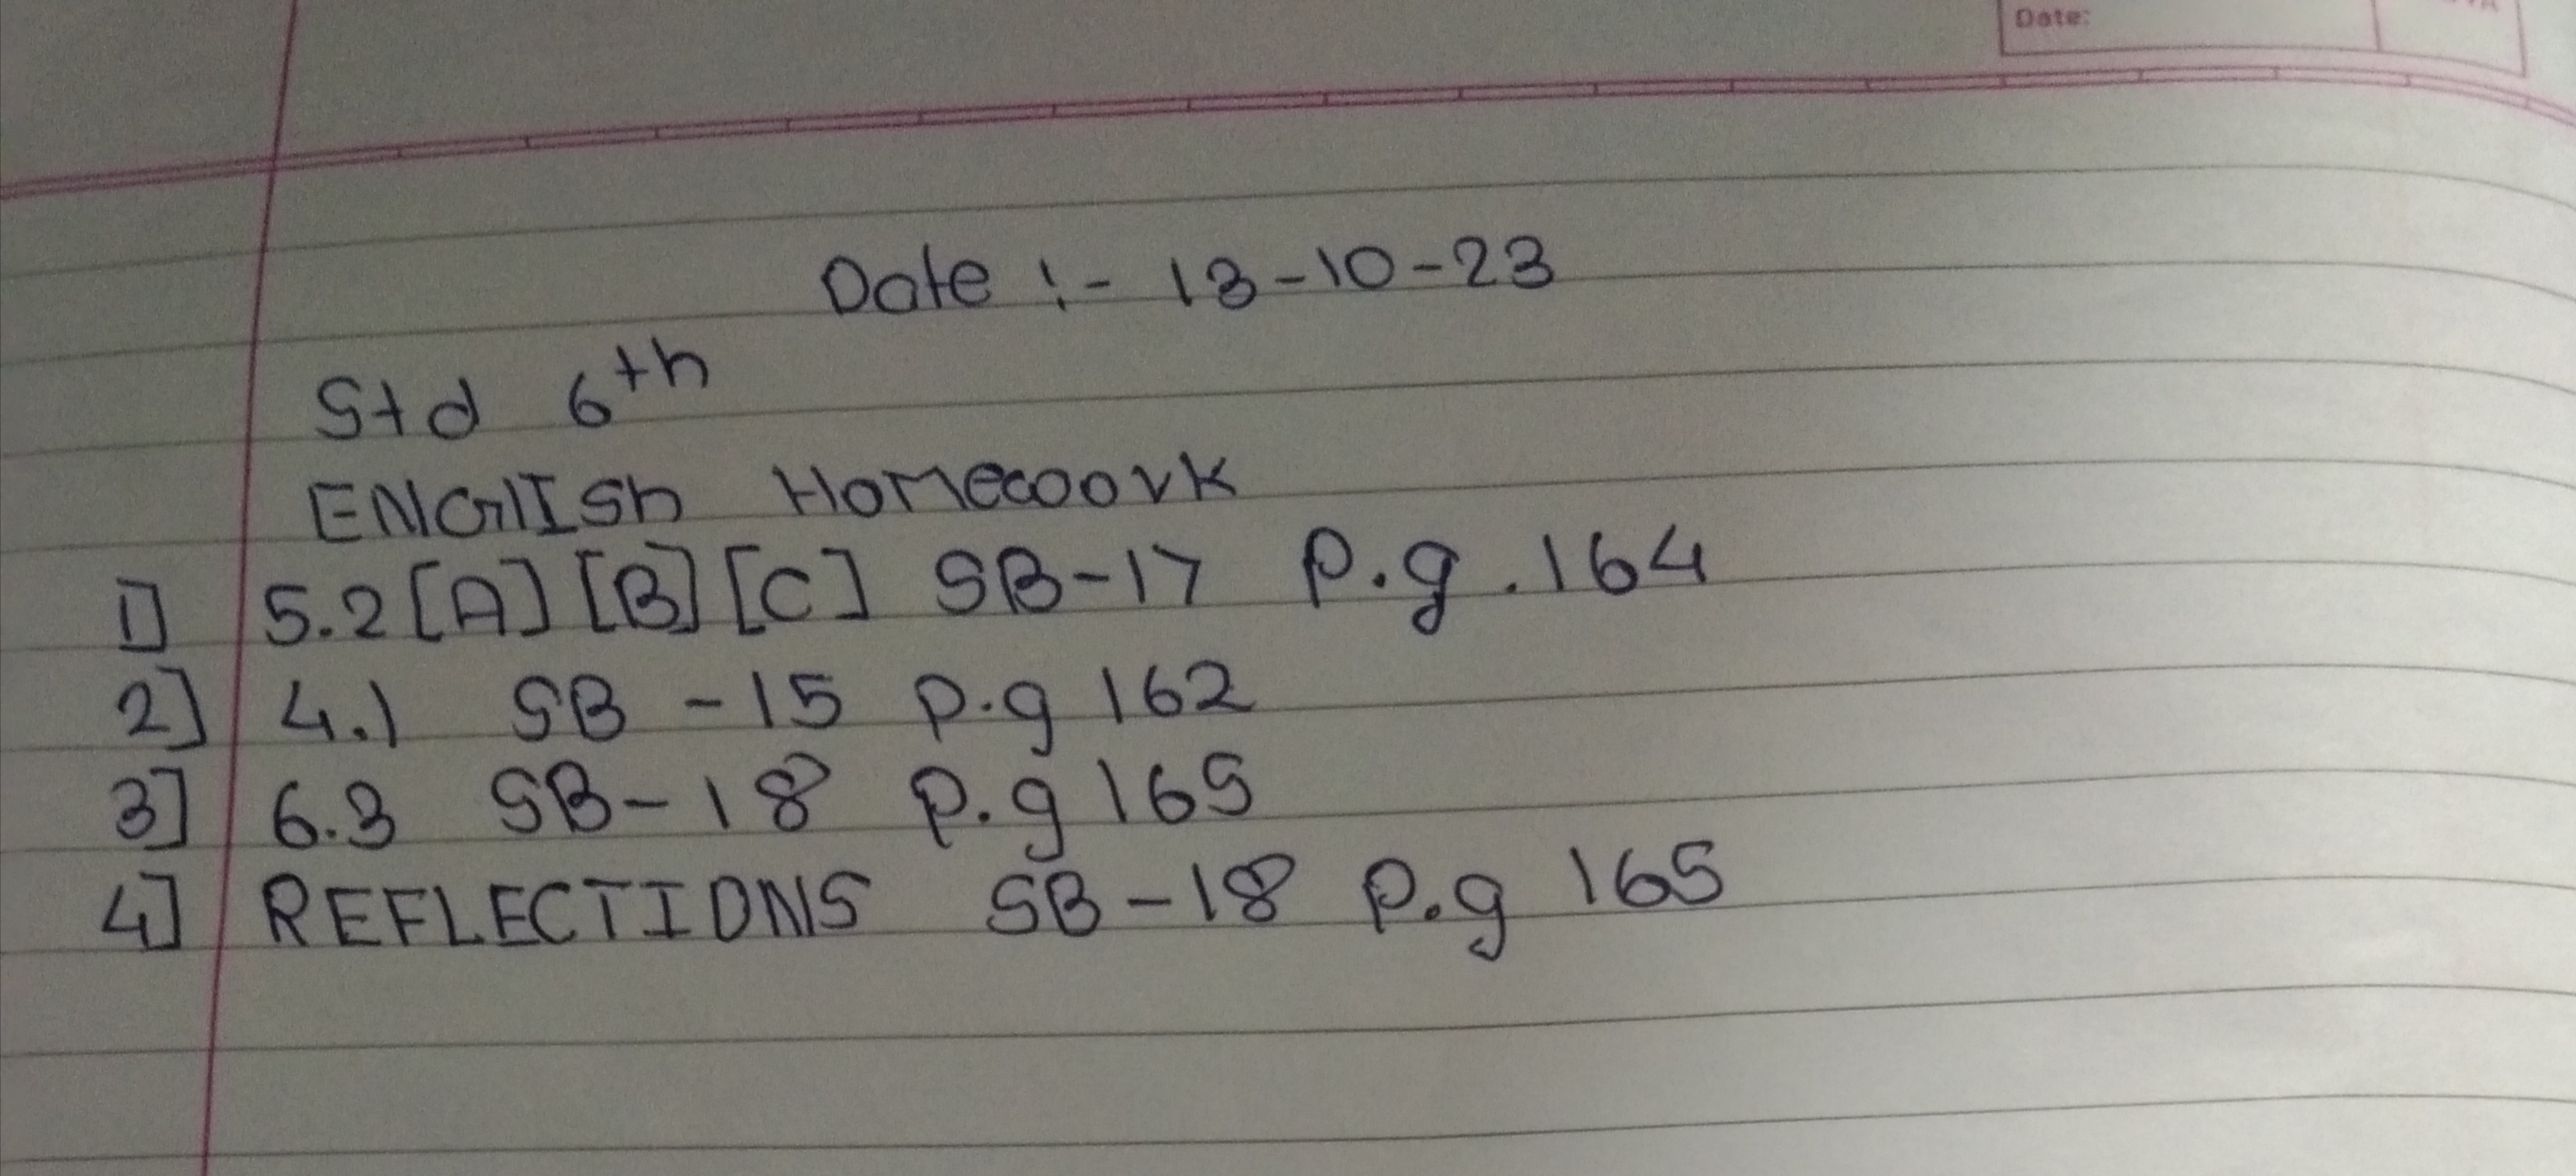 Date:
Date :- 13-10-23
Std 6th
ENGlISh Homework
1] 5.2 [A] [B] [C] SB-17 P.g. 164
2] 4.1 SB - 15 P.g 162
3] 6.3 SB-18 P.g 165
4] REFLECTIONS SB-18 P.g 165